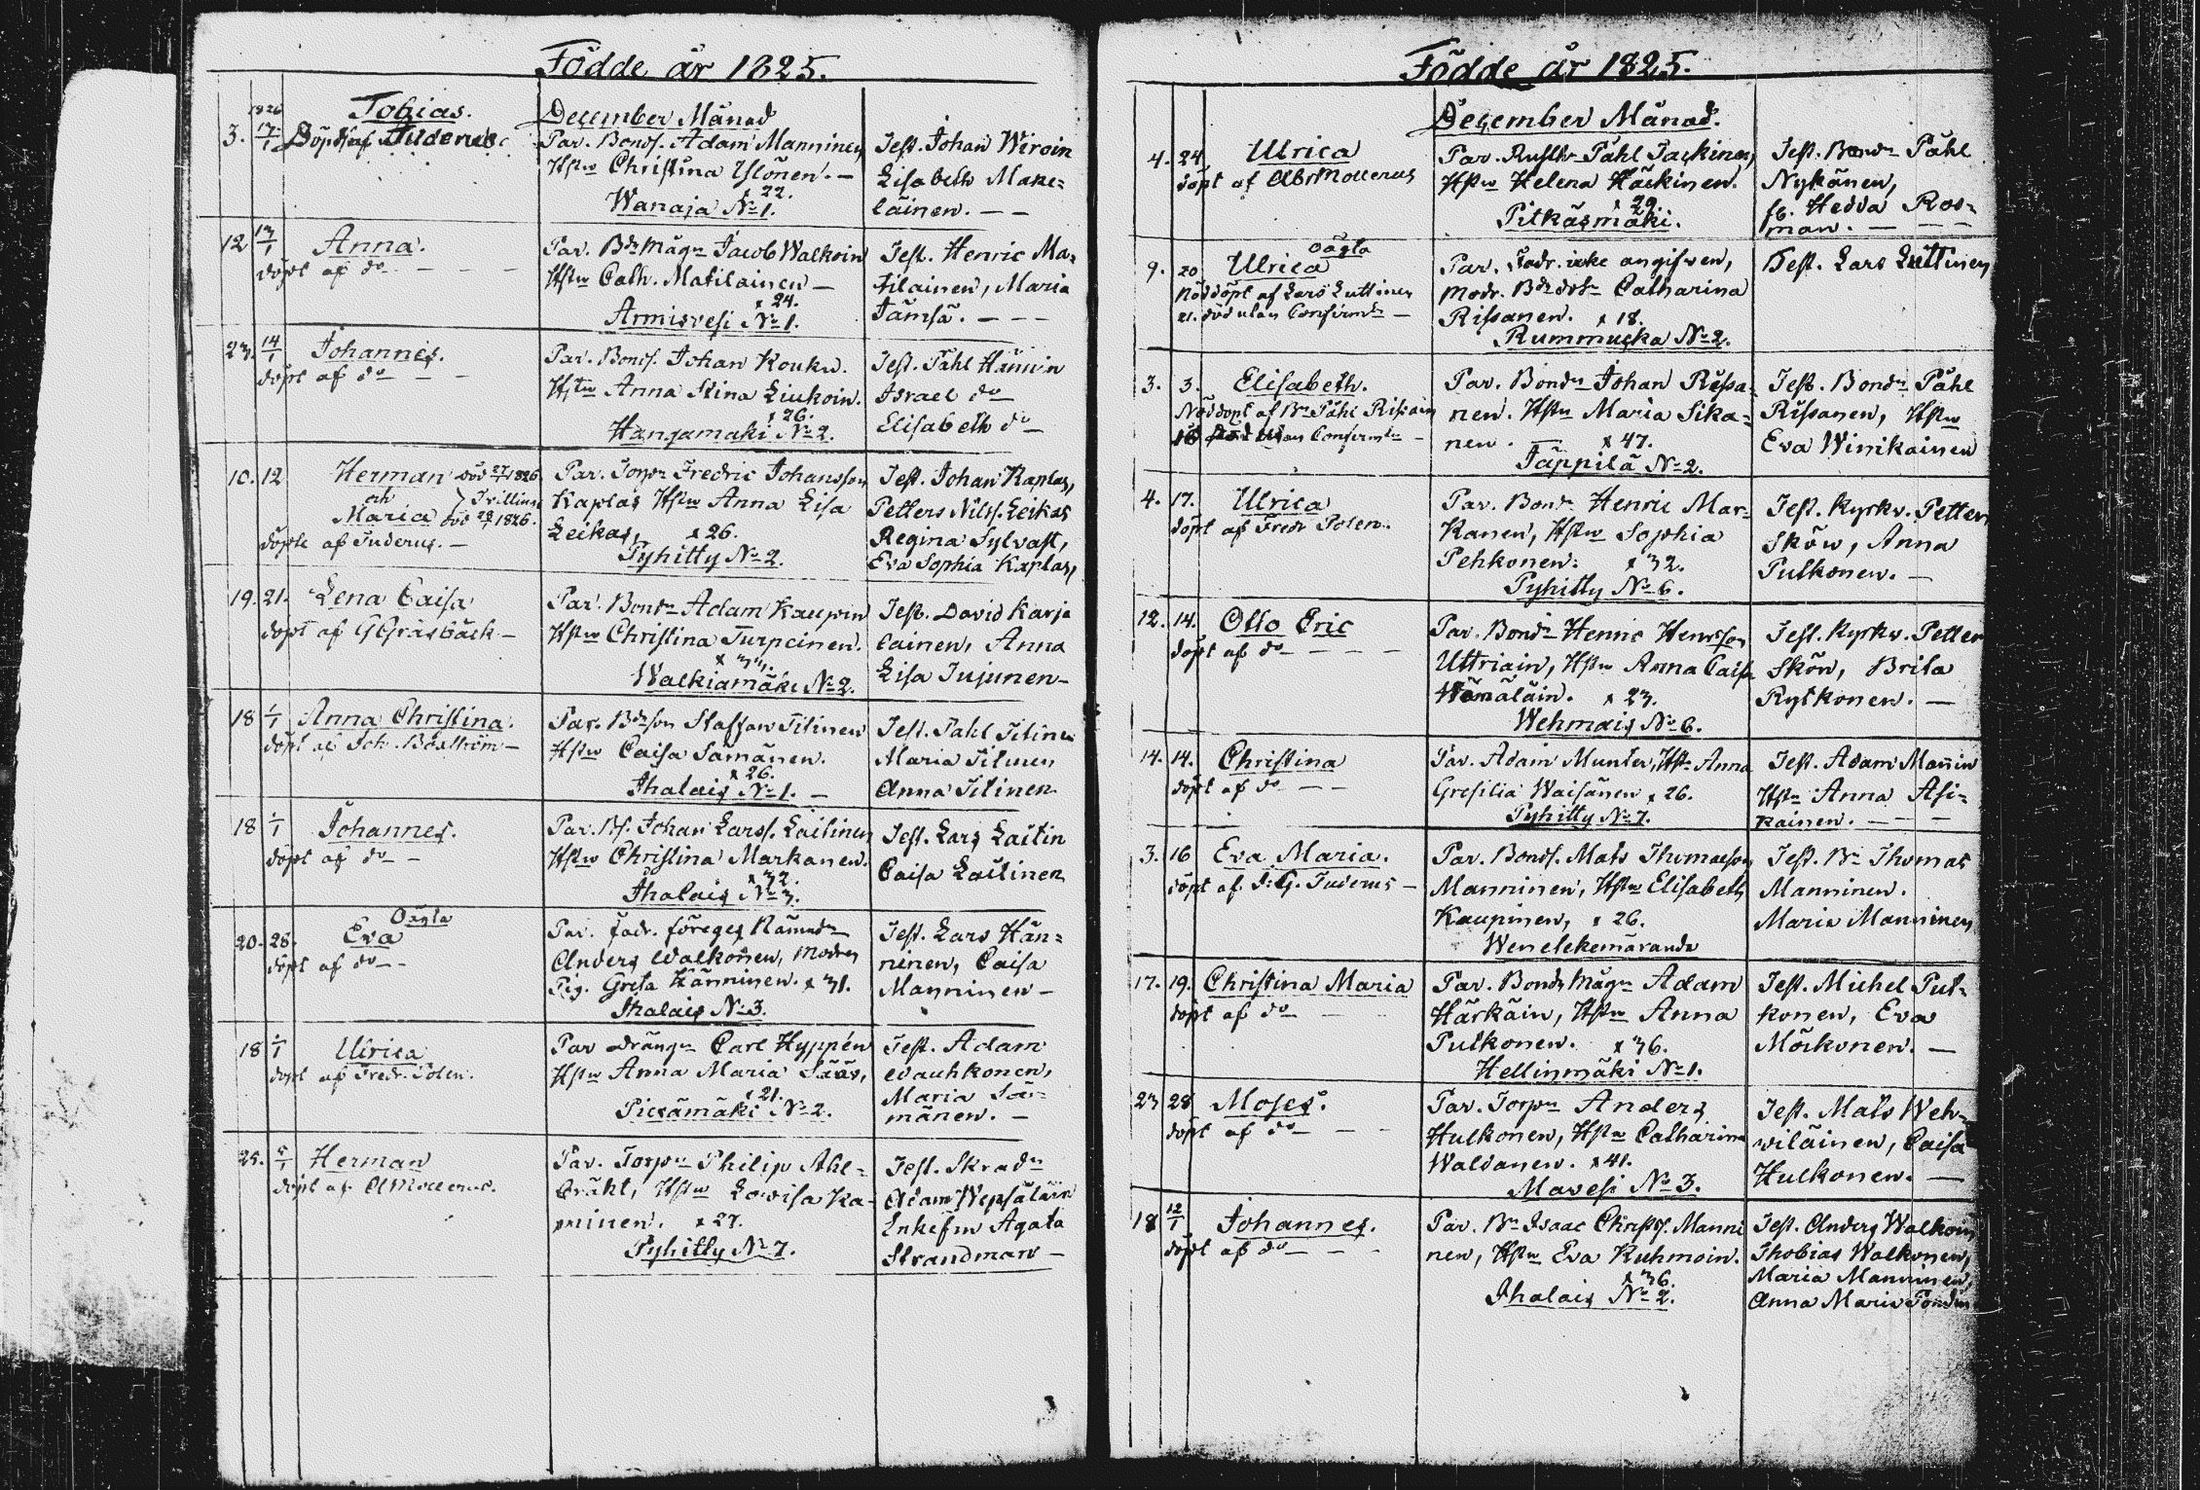 Födde år 1825.
December Månad
1826
3. 13/1 Tobias.
Döpt af Juderus
Par. Bonds. Adam Manninen
Hstru Christina Ylönen. —
x 22.
Wanaja No 1.
Test. Johan Wiroin
Lisabeth Mane=
läinen. — —
12 13/1 Anna.
döpt af do — — —
Par. Bde Mågn Jacob Walkoin
Hstru Cath. Matilainen —
x 24.
Armisvesi No 1.
Test. Henric Ma=
tilainen, Maria
Jämsä. — — —
23. 14/1 Johannes.
döpt af do — —
Par. Bonds. Johan Koukn.
Hstru Anna Stina Liukoin.
x 26.
Hangamaki No 2.
Test. Påhl Hänin
Israel do
Elisabeth do —
10. 12 Herman död 27/1 1826
och } Tvillingar
Maria död 28/1 1826.
döpte af Juderus. —
Par. Torpr Fredric Johansson
Kaplas Hstru Anna Lisa
Leikas, x 26.
Pyhitty No 2.
Test. Johan Kaplas,
Petters Nilss. Leikas
Regina Sylvast,
Eva Sophia Kaplas,
19. 21. Lena Caisa
döpt af G Gråsbäck —
Par. Bondn Adam Kaupin
Hstru Christina Turpeinen.
x 33.
Walkiamäki No 2.
Test. David Karja
lainen, Anna
Lisa Jujunen —
18 1/1 Anna Christina.
döpt af Joh. Boström —
Par. Bdeson Staffan Titinen
Hstru Caisa Sämänen.
x 26.
Ihalais No 1. —
Test. Påhl Titinen
Maria Titinen
Anna Titinen
18 1/1 Johannes.
döpt af do —
Par. Bs. Johan Larss. Laitinen
Hstru Christina Markanen.
x 32.
Ihalais No 3.
Test. Lars Laitin
Caisa Laitinen
20. 28. Oägta
Eva
döpt af do — —
Par. fadr. föreges Nämndn
Anders Walkonen, Modren
Pig. Greta Hänninen. x 31.
Ihalais No 3.
Test. Lars Hän=
ninen, Caisa
Manninen —
18 1/1 Ulrica
döpt af Fredr. Polen.
Par Drängn Carl Hyppén
Hstru Anna Maria Sääs,
x 21.
Piesämäki No 2.
Test. Adam
Wauhkonen,
Maria Sär=
mänen. —
25. 5/1 Herman
döpt af A Mollerus.
Par. Torpn Philip Ahl=
bräkt, Hstru Lovisa Ka=
minen. x 27.
Pyhitty No 7.
Test. Skradn
Adam Wepsäläin
Enkefru Agata
Strandman —
Födde år 1825.
December Månad.
4. 24. Ulrica
döpt af Abr Mollerus
Par. Rusthr Påhl Jackinen,
Hstru Helena Häckinen.
x 29.
Pitkäsmäki.
Test. Bondn Påhl
Nykänen,
fb. Hedda Ros=
man. — — —
9. 20 Oägta
Ulrica
Nöddöpt af Lars Luttinen
21. död utan Confirmn —
Par. Fadr. icke angifven,
Modr. Bdedotr Catharina
Rissanen. x 18.
Rummucka No 2.
Test. Lars Luttinen
3. 3. Elisabeth.
Nöddöpt af Bn Påhl Rissain
16 död utan Confirmn —
Par. Bondn Johan Rissa=
nen. Hstru Maria Sika=
nen. — x 47.
Jäppilä No 2.
Test. Bondn Påhl
Rissanen, Hstru
Eva Winikainen
4. 17. Ulrica
döpt af Fredr Polen.
Par. Bondn Henric Mar=
kanen, Hstru Sophia
Pehkonen. x 32.
Pyhitty No 6.
Test. Kyrkv. Petter
Sköw, Anna
Pulkonen. —
12. 14. Otto Eric
döpt af do — — — —
Par. Bondn Henric Henrsson
Uttriain, Hstru Anna Caisa
Hämäläin. x 23.
Wehmais No 6.
Test. Kyrkv. Petter
Skön, Brita
Rytkonen. —
14. 14. Christina
döpt af do — —
Par. Adam Munter, Hstru Anna
Gresilia Waisänen x 26.
Pyhitty No 7.
Test. Adam Mañin
Hstru Anna Asi=
kainen. — — —
3. 16 Eva Maria.
döpt af J: G. Juderus —
Par. Bonds. Mats Thomasson
Manninen, Hstru Elisabeth
Kaupinen, x 26.
Wenelekemäranda
Test. Bn Thomas
Manninen.
Maria Manninen
17. 19. Christina Maria
döpt af do — —
Par. Bonds Mågn Adam
Härkäin, Hstru Anna
Pulkonen. x 36.
Hellinmäki No 1.
Test. Michel Pul=
konen, Eva
Möikonen. —
23 28 Moses.
döpt af do — —
Par. Torpn Anders
Hulkonen, Hstru Catharina
Waldanen. x 41.
Mavesi No 3.
Test. Mats Weh=
wiläinen, Caisa
Hulkonen. —
18 12/1 Johannes.
döpt af do — — —
Par. Bn Isaac Christ. Manni
nen, Hstru Eva Kuhmoin.
x 36.
Ihalais No 2.
Test. Anders Walkoin
Thobias Walkonen,
Maria Manninen,
Anna Maria